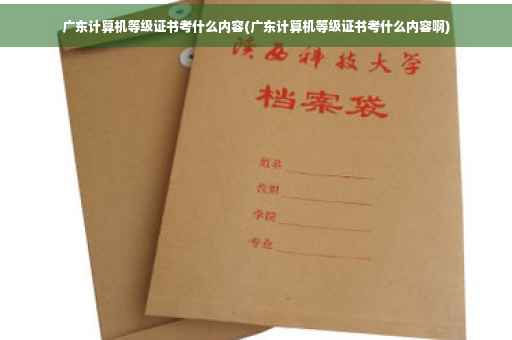 广东计算机等级证书考什么内容(广东计算机等级证书考什么内容啊)
陕西科技大学
档案袋
姓名
学院
专业